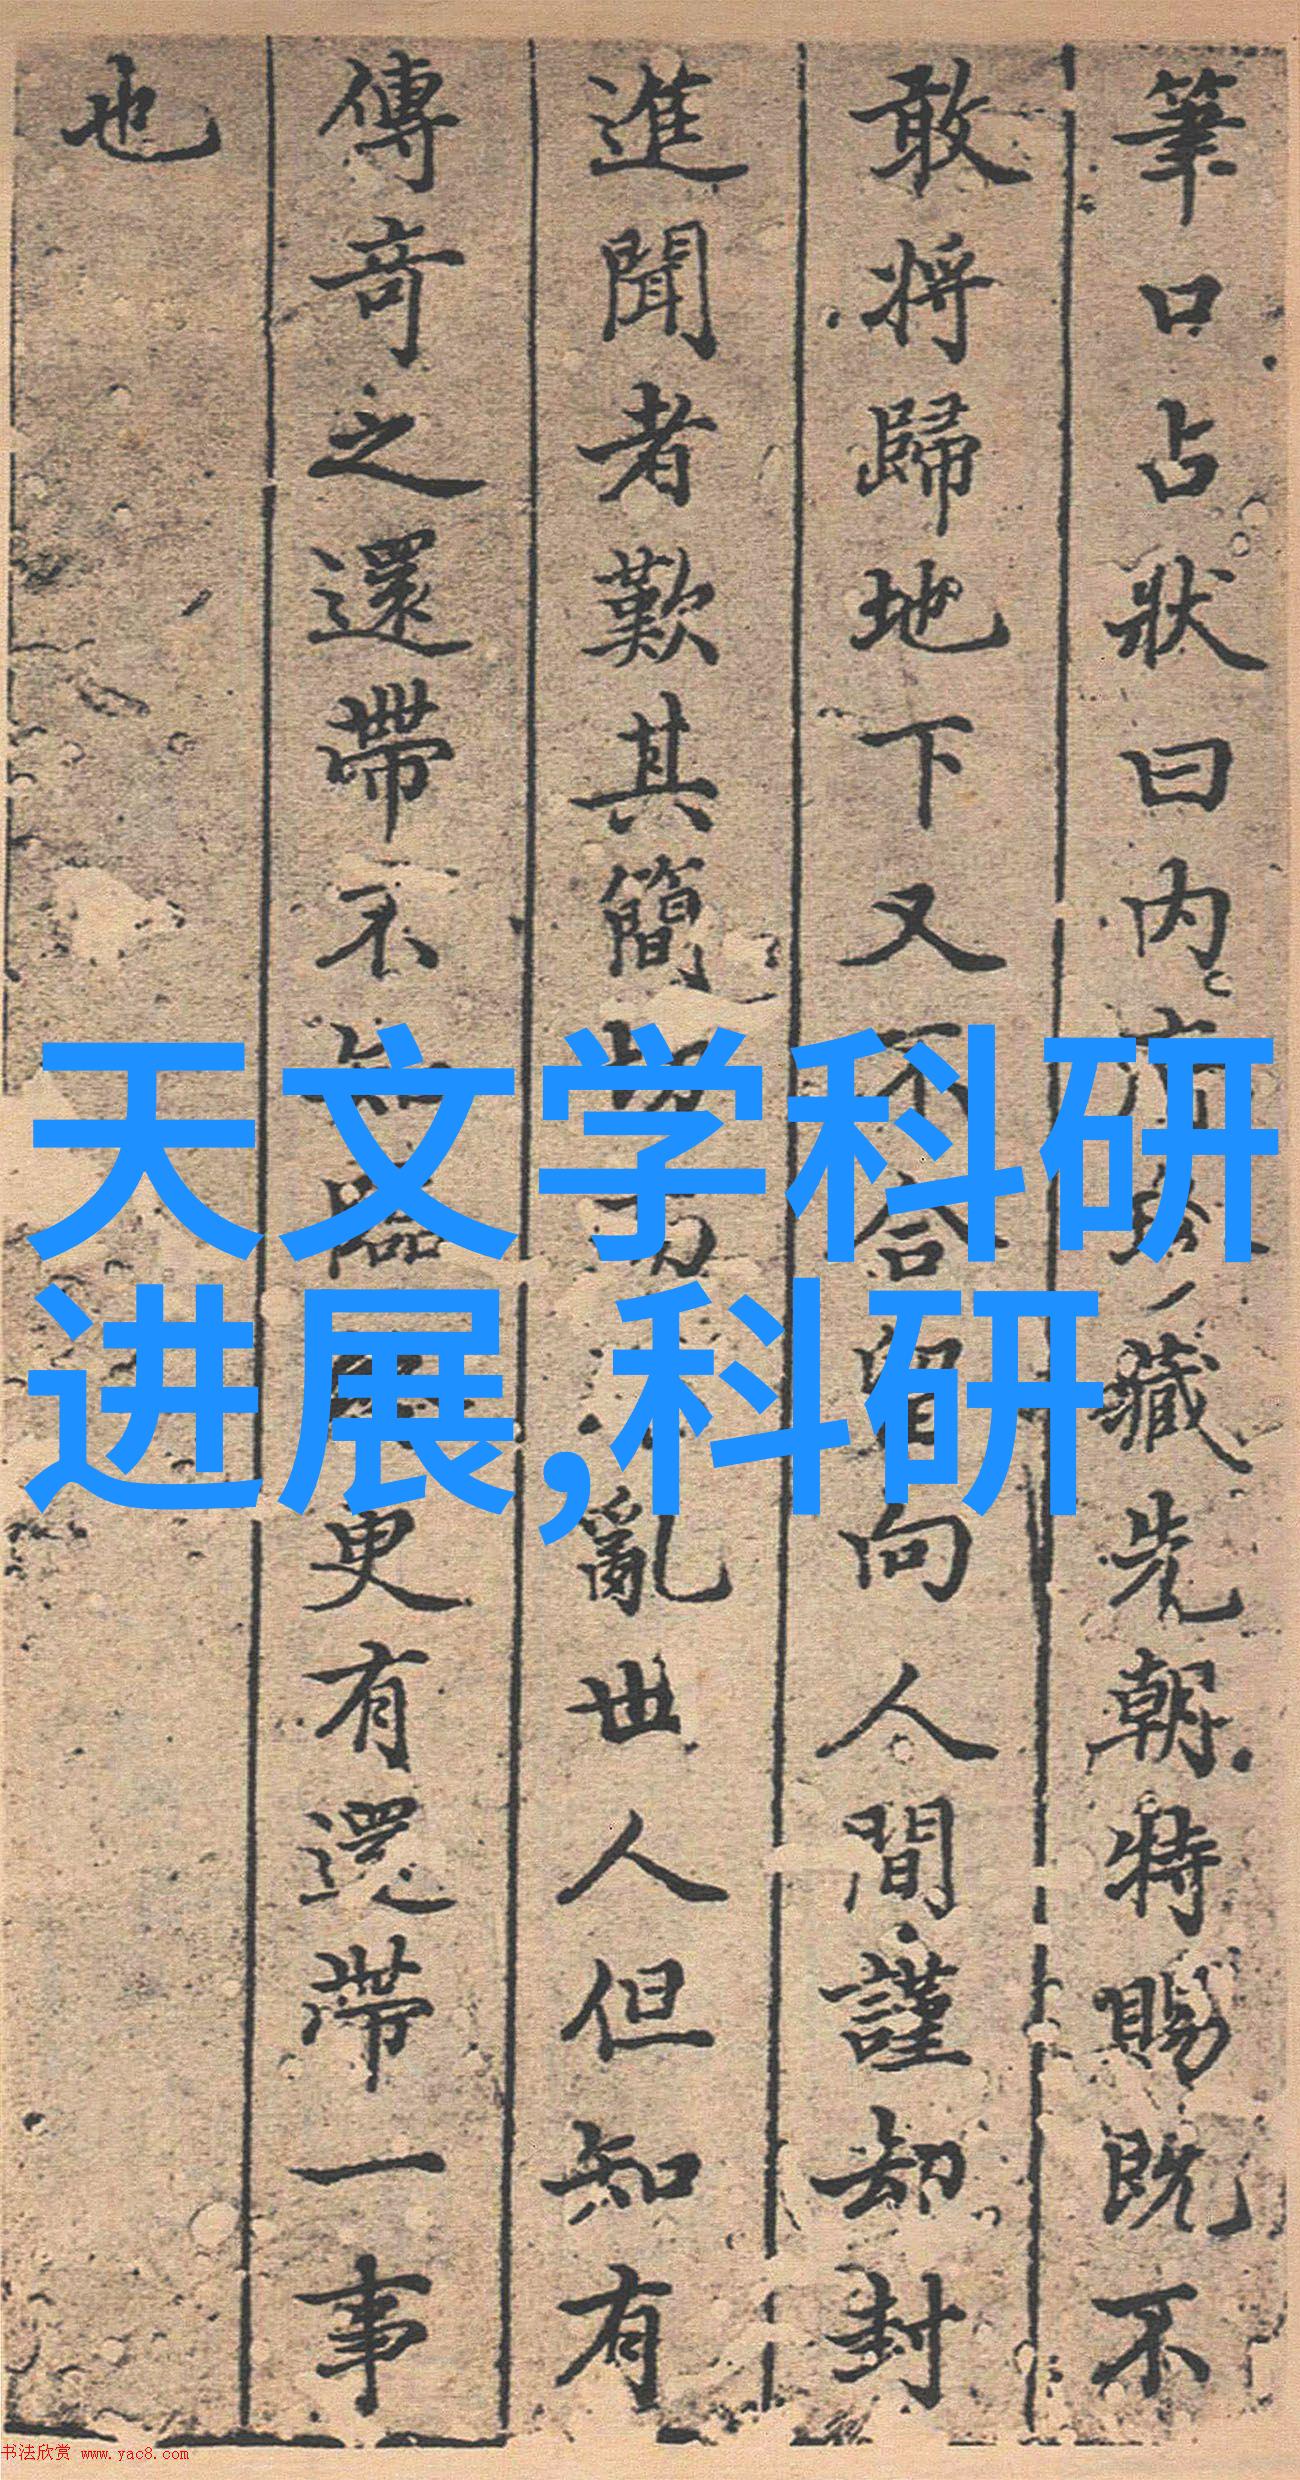 筆口占狀曰内藏先朝特賜既不
敢將歸地下又不合留向人間謹却封
進聞者歎其簡切亂世人但知有
傳奇之還帶不知臨更有還帶一事
也
天文学科研
进展,科研
书法欣赏 www.yac8.com